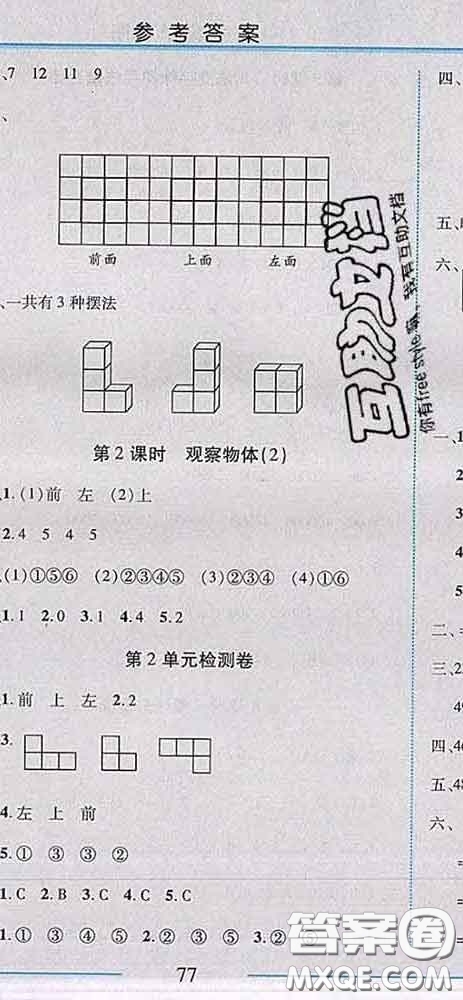 参考答案
、7 12 11 9
、
前面 上面 左面
、一共有3种摆法
第2课时 观察物体(2)
1.(1)前 左 (2)上
2.4 5 4 5
、(1)①⑤⑥ (2)②③④⑤ (3)②③④ (4)①⑥
1.1 2.0 3.1 4.4 5.2
第2单元检测卷
1.前 上 左 2.2
3.
4.左 上 前
5.① ③ ③ ②
1.C 2.B 3.C 4.C 5.C
1.① ③ ④ ⑤ 2.② ③ ⑤ 3.② ⑤
77
四、
五、
六、
一、1
2
3
4
5
二、=
三、2
49
四、46
五、48
六、
=
=
=
互助文档
你有free style嘛,我有互助文档
答案卷
MXQE.COM